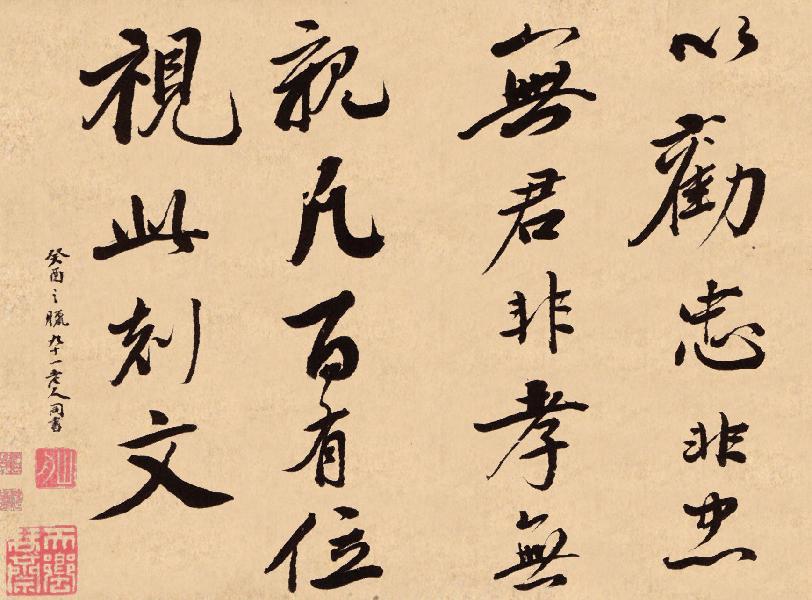 以勸忠非忠
無君非孝無
親凡百有位
視此刻文
癸酉之臘九十一老人同書